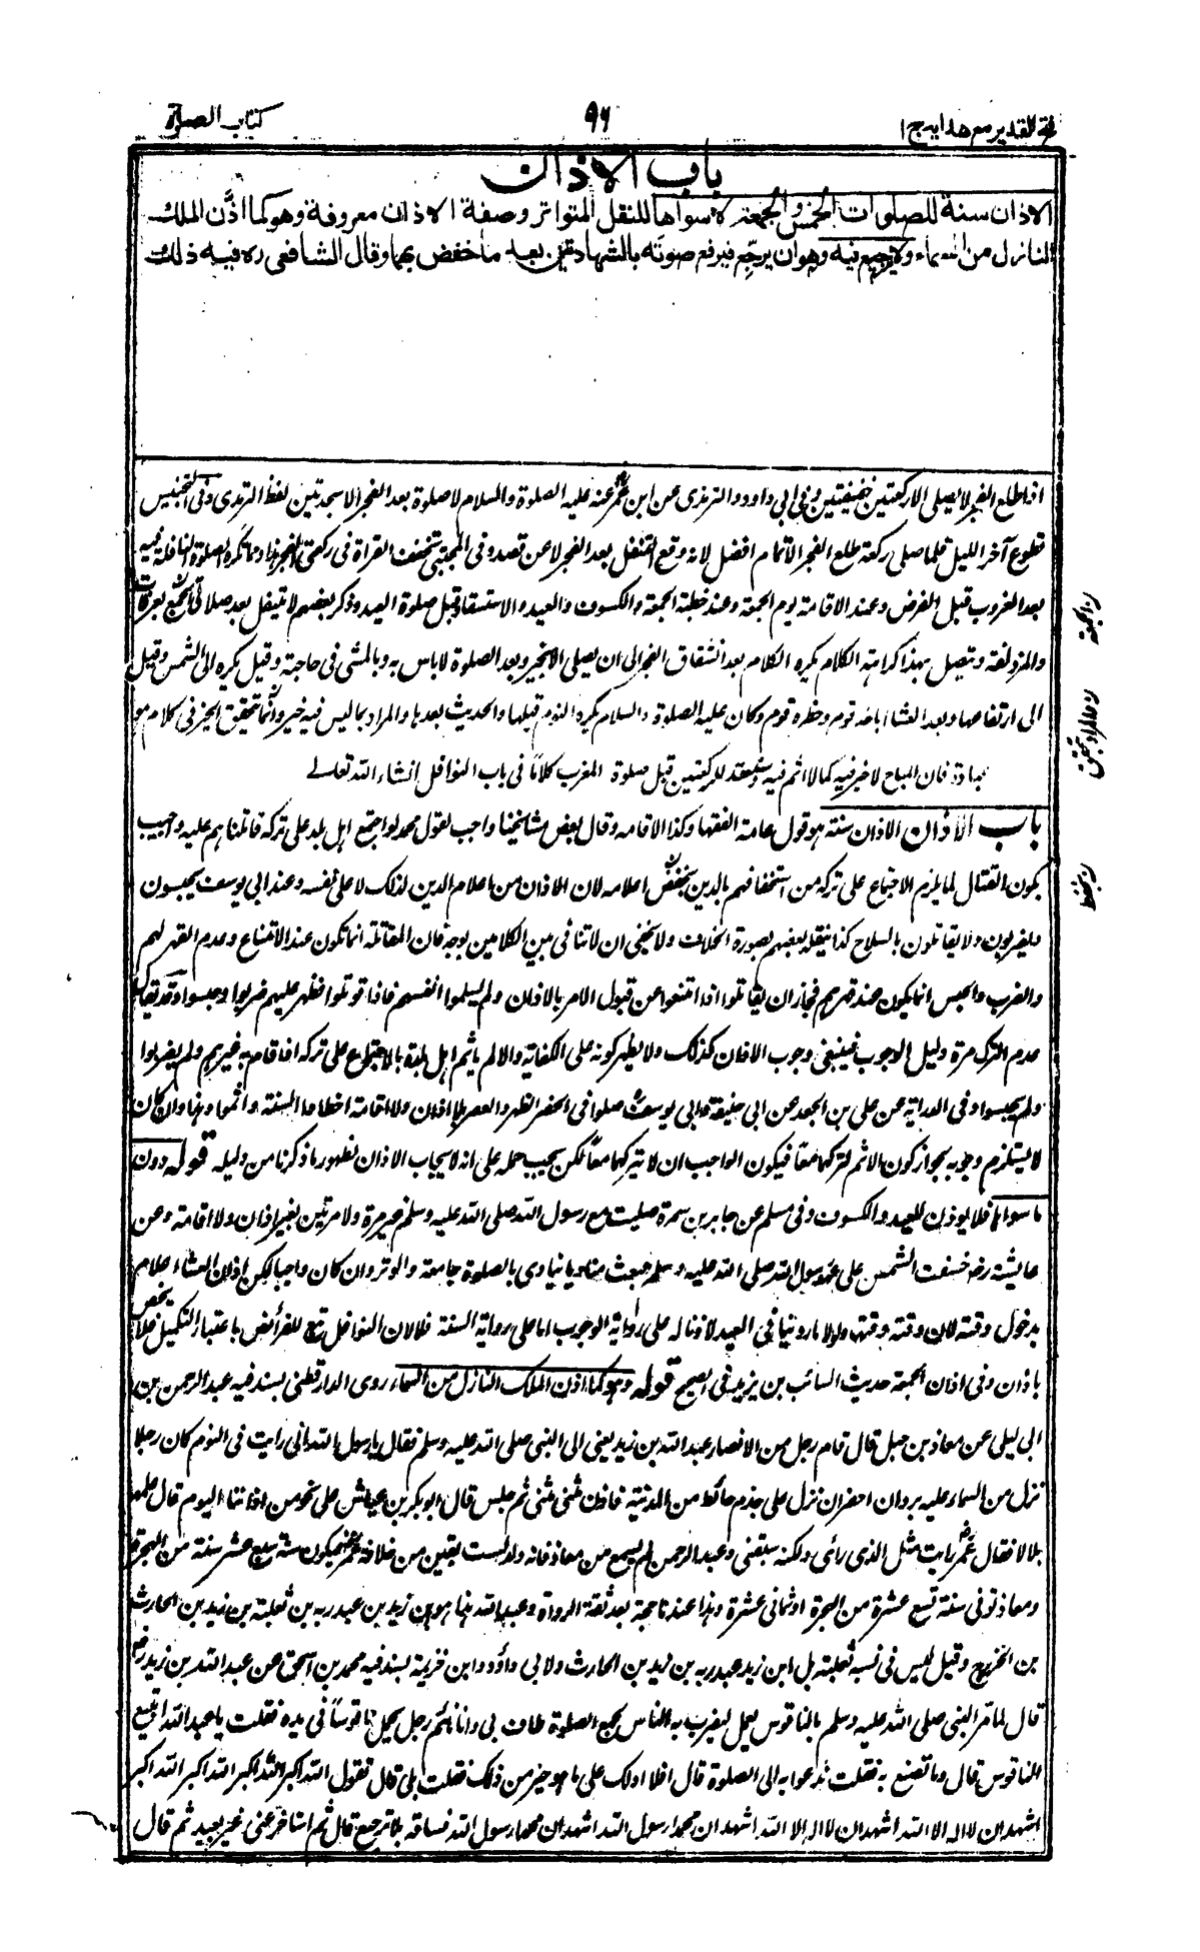 فتح القدير مع هدايه ج ١
٩٦
كتاب الصلوة
باب الاذان
الاذان سنة للصلوات الخمس والجمعة لا سواها للنقل المتواتر وصفة الاذان معروفة وهو كما اذّن الملك
النازل من السماء ولا ترجيع فيه وهو ان يرجّع فيرفع صوته بالشهادتين بعد ما خفض بهما وقال الشافعى ره فيه ذلك
اذا طلع الفجر لا يصلى الا ركعتين خفيفتين وفى ابى داود والترمذى عن ابن عمر عنه عليه الصلوة والسلام لا صلوة بعد الفجر الا سجدتين لفظ الترمذى وفى التجنيس
تطوع آخر الليل فلما صلى ركعة طلع الفجر الاتمام افضل لانه وقع التنفل بعد الفجر لا عن قصد وفى المجتبى تخفف القراة فى ركعتى الفجر
بعد الغروب قبل الفرض وعند الاقامة يوم الجمعة وعند خطبة الجمعة والكسوف والعيد والاستسقاء وقبل صلوة العيد وذكر بعضهم لا يتنفل بعد صلاتى الجمع بعرفات
والمزدلفة ويتصل بهذا كراهة الكلام يكره الكلام بعد انشقاق الفجر الى ان يصلى الا بخير وبعد الصلوة لا باس به وبالمشى فى حاجته وقيل يكره الى الشمس وقيل
الى ارتفاعها وبعد العشاء اباحه قوم وحظره قوم وكان عليه الصلوة والسلام يكره النوم قبلها والحديث بعدها والمراد بما ليس فيه خير وانما تحقق الخير فى كلام هو
عبادة فان المباح لا خير فيه كما لا اثم فيه وسنعقد للركعتين قبل صلوة المغرب كلاما فى باب النوافل انشاء الله تعالى
باب الاذان الاذان سنة هو قول عامة الفقها وكذا الاقامة وقال بعض مشائخنا واجب لقول محمد لو اجتمع اهل بلد على تركه قاتلناهم عليه واجيب
بكون القتال لما يلزم الاجتماع على تركه من استخفافهم بالدين بخفض اعلامه لان الاذان من اعلام الدين لذلك لا على نفسه وعند ابى يوسف يحبسون
ويضربون ولا يقاتلون بالسلاح كذا نقله بعضهم بصورة الخلاف ولا يخفى ان لا تنافى بين الكلامين بوجه فان المقاتلة انما تكون عند الامتناع وعدم القهر لهم
والضرب والحبس انما يكون عند قهرهم فجاز ان يقاتلوا اذا امتنعوا عن قبول الامر بالاذان ولم يسلموا انفسهم فاذا قوتلوا فظهر عليهم ضربوا وحبسوا وقد يقال
عدم الترك مرة دليل الوجوب فينبغى وجوب الاذان كذلك ولا يظهر كونه على الكفاية والا لم ياثم اهل بلدة بالاجتماع على تركه اذا قام به غيرهم ولم يضربوا
ولم يحبسوا وفى الدراية عن على بن الجعد عن ابى حنيفة وابى يوسف صلوا فى الحضر الظهر والعصر بلا اذان ولا اقامة اخطاوا السنة واثموا وهذا وان كان
لا يستلزم وجوبه بجواز كون الاثم لتركهما معا فيكون الواجب ان لا يتركهما معا لكن يجب حمله على انه لايجاب الاذان لظهور ما ذكرنا من دليله قوله دون
ما سواها فلا يوذن للعيد والكسوف وفى مسلم عن جابر بن سمرة صليت مع رسول الله صلى الله عليه وسلم غير مرة ولا مرتين بغير اذان ولا اقامة وعن
عائشة رض خسفت الشمس على عهد رسول الله صلى الله عليه وسلم فبعث مناديا ينادى بالصلوة جامعة والوتر وان كان واجبا لكن اذان العشاء اعلام
بدخول وقته لان وقته وقتها ولولا ما روينا فى العيد لاذنا له على رواية الوجوب اما على رواية السنة فلان النوافل تبع للفرائض باعتبار التكميل فلا يخص
باذان وفى اذان الجمعة حديث السائب بن يزيد فى الصحيح قوله وهو كما اذن الملك النازل من السماء روى الدارقطنى بسند فيه عبد الرحمن بن
ابى ليلى عن معاذ بن جبل قال قام رجل من الانصار عبد الله بن زيد يعنى الى النبى صلى الله عليه وسلم فقال يا رسول الله انى رايت فى النوم كان رجلا
نزل من السماء عليه بردان اخضران نزل على جذم حائط من المدينة فاذن مثنى مثنى ثم جلس قال ابو بكر بن عياش على نحو من اذاننا اليوم قال علمها
بلالا فقال عمر رايت مثل الذى رأى ولكنه سبقنى وعبد الرحمن لم يسمع من معاذ فانه ولد لست بقين من خلافة عمر فيكون سنة سبع عشر سنة من الهجرة
ومعاذ توفى سنة تسع عشرة من الهجرة او ثمانى عشرة وهذا عندنا حجة بعد ثقة الرواة وعبد الله هذا هو ابن زيد بن عبد ربه بن ثعلبة بن زيد بن الحارث
بن الخزرج وقيل ليس فى نسبه ثعلبة بل ابن زيد عبد ربه بن زيد بن الحارث ولابى داؤد وابن خزيمة بسند فيه محمد بن اسحق عن عبد الله بن زيد رض
قال لما امر النبى صلى الله عليه وسلم بالناقوس يعمل ليضرب به للناس لجمع الصلوة طاف بى وانا نائم رجل يحمل ناقوساً فى يده فقلت يا عبد الله اتبيع
الناقوس قال وما تصنع به فقلت ندعوا به الى الصلوة قال افلا ادلك على ما هو خير من ذلك فقلت بلى قال تقول الله اكبر الله اكبر الله اكبر الله اكبر
اشهد ان لا اله الا الله اشهد ان لا اله الا الله اشهد ان محمدا رسول الله اشهد ان محمدا رسول الله فساقه بلا ترجيع قال ثم استاخر عنى غير بعيد ثم قال